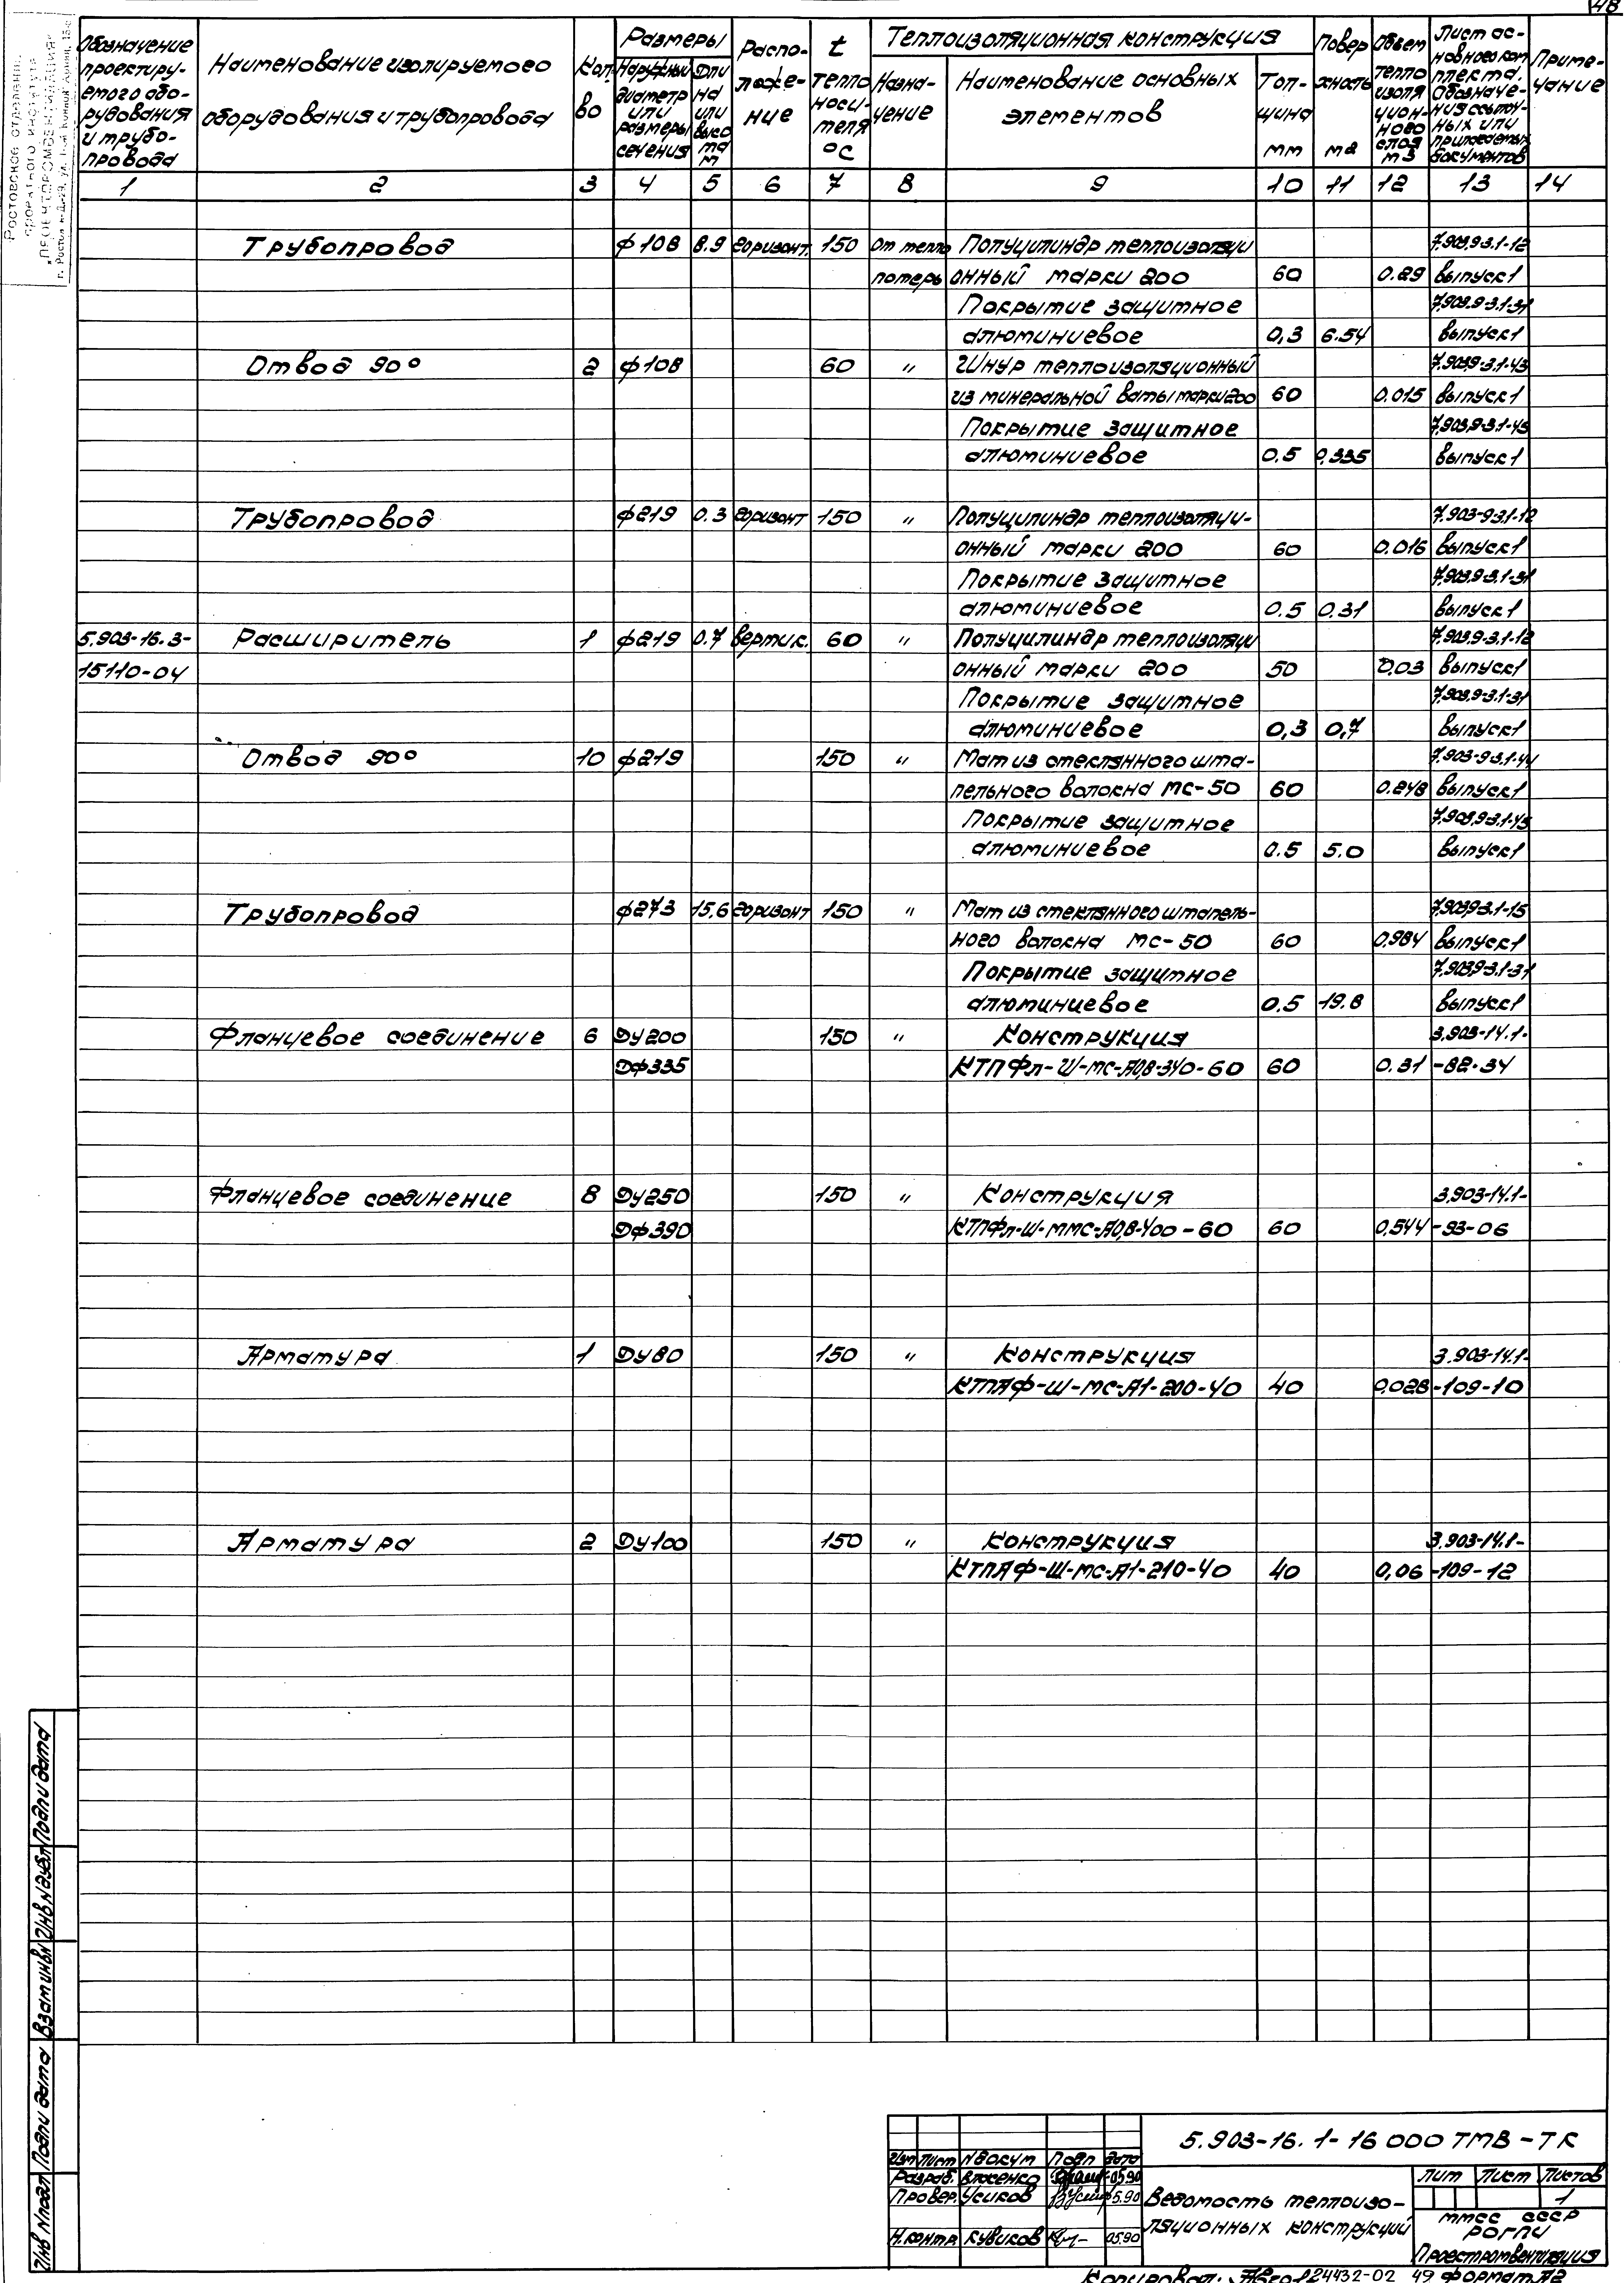 48
Ростовское отделение
проектного института
"ПРОЕКТПРОМВЕНТИЛЯЦИЯ"
Обозначение проектируемого оборудования и трубопровода
Наименование изолируемого оборудования и трубопровода
Кол-во
Размеры
Наружный диаметр или размеры сечения
Длина или высота м
Расположение
t теплоносителя °С
Теплоизоляционная конструкция
Назначение
Наименование основных элементов
Толщина мм
Поверхность м2
Объем теплоизоляционного слоя м3
Лист основного комплекта. Обозначения ссылочных или прилагаемых документов
Примечание
1 2 3 4 5 6 7 8 9 10 11 12 13 14
Трубопровод ф108 8.9 горизонт. 150 От тепло Полуцилиндр теплоизоляци 7.903.9-3.1-12
потерь онный марки 200 60 0.29 выпуск1
Покрытие защитное 7.903.9-3.1-31
алюминиевое 0,3 6.54 выпуск1
Отвод 90° 2 ф108 60 " Шнур теплоизоляционный 7.903.9-3.1-43
из минеральной ваты марки 200 60 0.015 выпуск1
Покрытие защитное 7.903.9-3.1-45
алюминиевое 0.5 0.335 выпуск1
Трубопровод ф219 0.3 горизонт 150 " Полуцилиндр теплоизоляци- 7.903-9.3.1-12
онный марки 200 60 0.016 выпуск1
Покрытие защитное 7.903.9-3.1-31
алюминиевое 0.5 0.31 выпуск1
5.903-16.3- Расширитель 1 ф219 0.7 вертик. 60 " Полуцилиндр теплоизоляци 7.903.9-3.1-12
15110-04 онный марки 200 50 0.03 выпуск1
Покрытие защитное 7.903.9-3.1-31
алюминиевое 0,3 0,7 выпуск1
Отвод 90° 10 ф219 150 " Мат из стеклянного шта- 7.903-9.3.1-44
пельного волокна МС-50 60 0.248 выпуск1
Покрытие защитное 7.903.9-3.1-45
алюминиевое 0.5 5.0 выпуск1
Трубопровод ф273 15.6 горизонт 150 " Мат из стеклянного штапель- 7.903.9-3.1-15
ного волокна МС-50 60 0.984 выпуск1
Покрытие защитное 7.903.9-3.1-31
алюминиевое 0.5 19.8 выпуск1
Фланцевое соединение 6 Ду200 150 " Конструкция 3.903-14.1-
Dф335 КТПФл-Ш-МС-А0,8-340-60 60 0.31 -82-34
Фланцевое соединение 8 Ду250 150 " Конструкция 3.903-14.1-
Dф390 КТПФл-Ш-ММС-А0,8-400-60 60 0,544 -93-06
Арматура 1 Ду80 150 " Конструкция 3.903-14.1-
КТПАФ-Ш-МС-А1-200-40 40 0,028 -109-10
Арматура 2 Ду100 150 " Конструкция 3.903-14.1-
КТПАФ-Ш-МС-А1-210-40 40 0,06 -109-12
Инв № подл Подп и дата Взам инв № Инв № дубл Подп и дата
5.903-16.1-16 000 ТМВ-ТК
Изм Лист № докум Подп Дата
Разраб. Власенко 05.90
Провер. Усиков 5.90
Н.контр. Кувиков 05.90
Ведомость теплоизо-
ляционных конструкций
Лит Лист Листов
1
ММСС СССР
РОГПИ
Проектпромвентиляция
Копировал: 24432-02 49 Формат А2